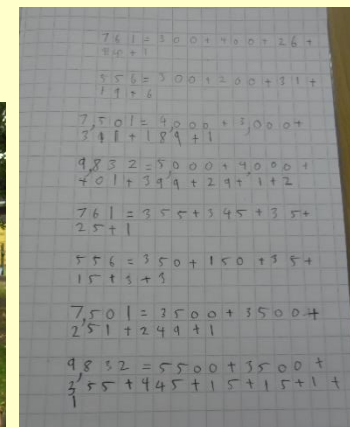 761=300+400+26+
+1
556=300+200+31+
19+6
7,501=4,000+3,000+
311+189+1
9,832=5,000+4,000+
401+399+29+1+2
761=355+345+35+
25+1
556=350+150+35+
15+3+3
7,501=3500+3500+
251+249+1
9,832=5500+3500+
355+445+15+15+1+
1